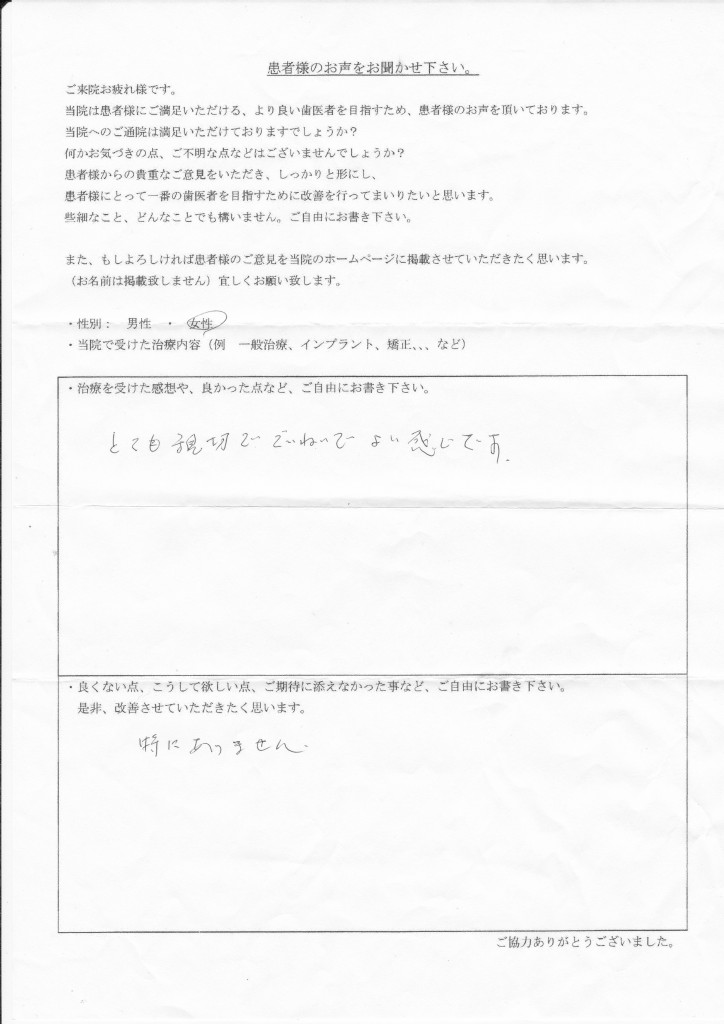 患者様のお声をお聞かせ下さい。
ご来院お疲れ様です。
当院は患者様にご満足いただける、より良い歯医者を目指すため、患者様のお声を頂いております。
当院へのご通院は満足いただけておりますでしょうか？
何かお気づきの点、ご不明な点などはございませんでしょうか？
患者様からの貴重なご意見をいただき、しっかりと形にし、
患者様にとって一番の歯医者を目指すために改善を行ってまいりたいと思います。
些細なこと、どんなことでも構いません。ご自由にお書き下さい。
また、もしよろしければ患者様のご意見を当院のホームページに掲載させていただきたく思います。
（お名前は掲載致しません）宜しくお願い致します。
・性別： 男性 ・ 女性
・当院で受けた治療内容（例 一般治療、インプラント、矯正、、、など）
・治療を受けた感想や、良かった点など、ご自由にお書き下さい。
とても親切でていねいでよい感じです.
・良くない点、こうして欲しい点、ご期待に添えなかった事など、ご自由にお書き下さい。
是非、改善させていただきたく思います。
特にありません.
ご協力ありがとうございました。